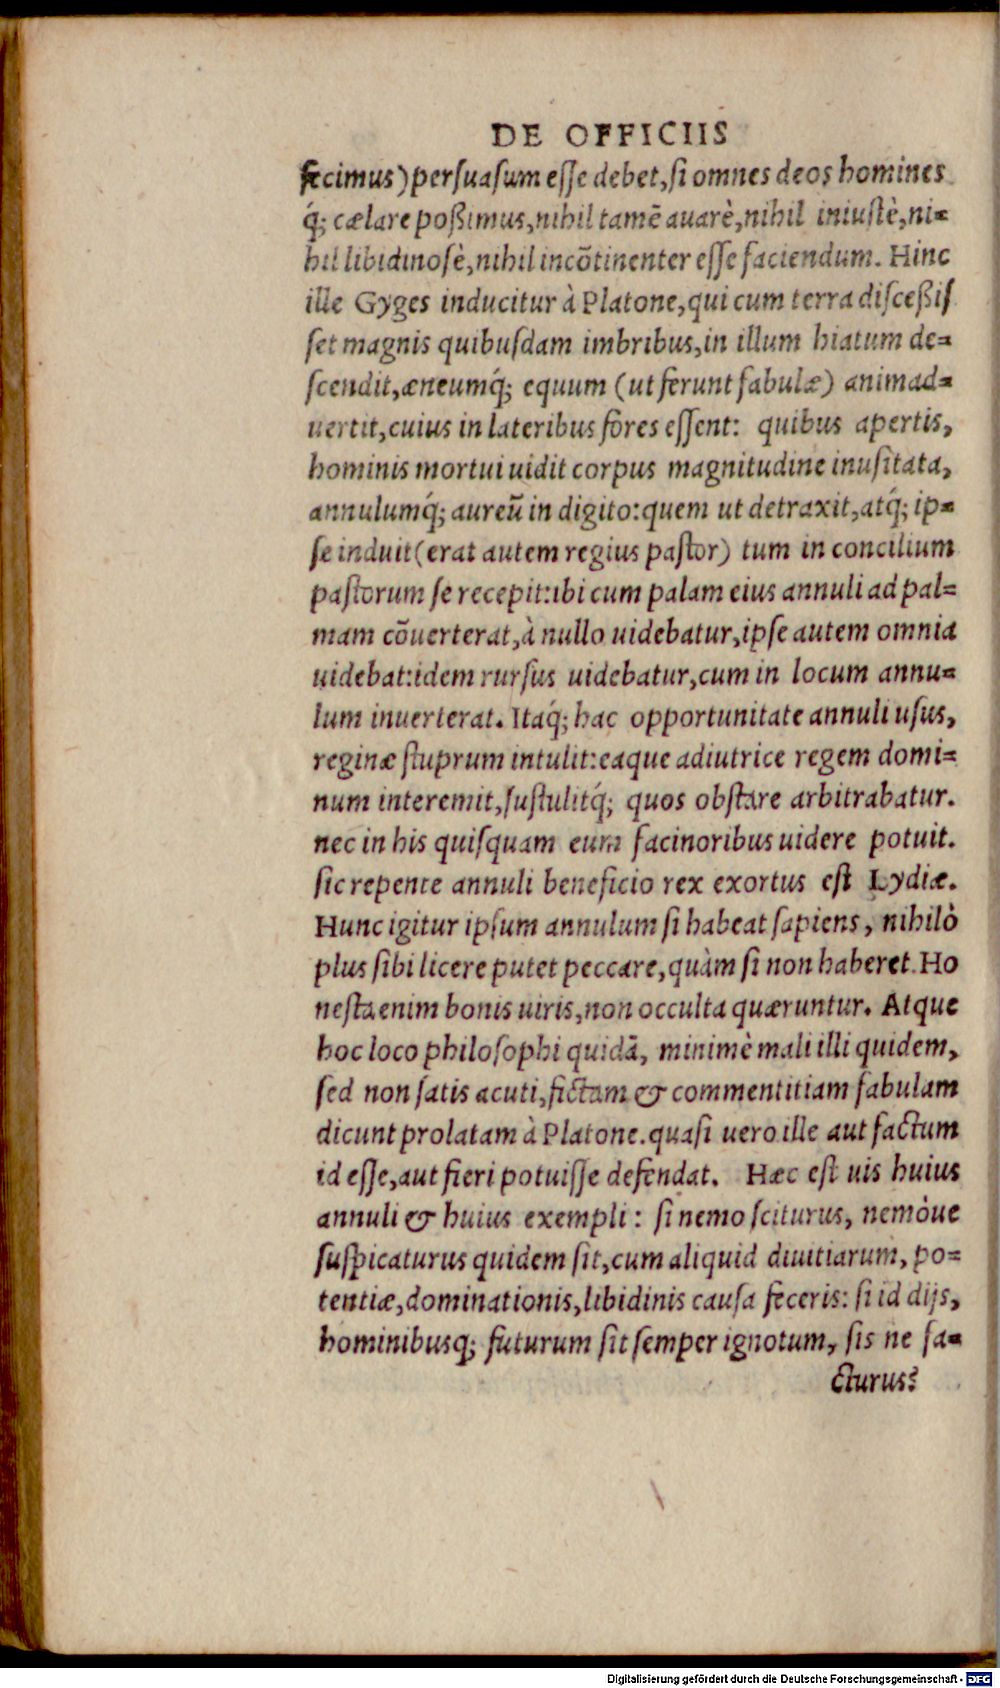 DE OFFICIIS
fecimus) persuasum esse debet, si omnes deos homines
q́; cælare poßimus, nihil tamē auarè, nihil iniustè, ni-
hil libidinosè, nihil incōtinenter esse faciendum. Hinc
ille Gyges inducitur à Platone, qui cum terra disceßis
set magnis quibusdam imbribus, in illum hiatum de-
scendit, æneumq́; equum (ut ferunt fabulæ) animad-
uertit, cuius in lateribus fores essent: quibus apertis,
hominis mortui uidit corpus magnitudine inusitata,
annulumq́; aureū in digito: quem ut detraxit, atq́; ip-
se induit (erat autem regius pastor) tum in concilium
pastorum se recepit: ibi cum palam eius annuli ad pal-
mam cōuerterat, à nullo uidebatur, ipse autem omnia
uidebat: idem rursus uidebatur, cum in locum annu-
lum inuerterat. Itaq́; hac opportunitate annuli usus,
reginæ stuprum intulit: eaque adiutrice regem domi-
num interemit, sustulitq́; quos obstare arbitrabatur.
nec in his quisquam eum facinoribus uidere potuit.
sic repente annuli beneficio rex exortus est Lydiæ.
Hunc igitur ipsum annulum si habeat sapiens, nihilò
plus sibi licere putet peccare, quàm si non haberet. Ho
nesta enim bonis uiris, non occulta quæruntur. Atque
hoc loco philosophi quidā, minimè mali illi quidem,
sed non satis acuti, fictam & commentitiam fabulam
dicunt prolatam à Platone. quasi uero ille aut factum
id esse, aut fieri potuisse defendat. Hæc est uis huius
annuli & huius exempli: si nemo sciturus, nemòue
suspicaturus quidem sit, cum aliquid diuitiarum, po-
tentiæ, dominationis, libidinis causa feceris: si id dijs,
hominibusq; futurum sit semper ignotum, sis ne fa-
cturus?
Digitalisierung gefördert durch die Deutsche Forschungsgemeinschaft - DFG